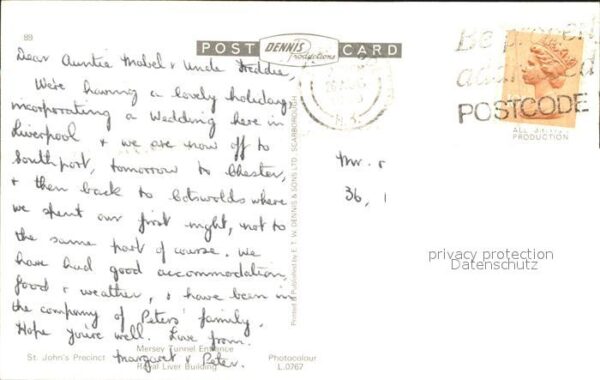 89
POST DENNIS Productions CARD
Dear Auntie Mabel & Uncle Freddie,
We're having a lovely holiday,
incorporating a Wedding here in
Liverpool & we are now off to
Southport, tomorrow to Chester,
& then back to Cotswolds where
we spent our first night, not to
the same part of course. We
have had good accommodation
food & weather, & have been in
the company of Peters' family.
Hope you're well. Love from.
Margaret & Peter.
Mersey Tunnel Entrance
St. John's Precinct
Royal Liver Building
Photocolour
L.0767
Printed & Published by E. T. W. DENNIS & SONS LTD. SCARBOROUGH
Be
POSTCODE
ALL BRITISH
PRODUCTION
Mr.
36,
privacy protection
Datenschutz